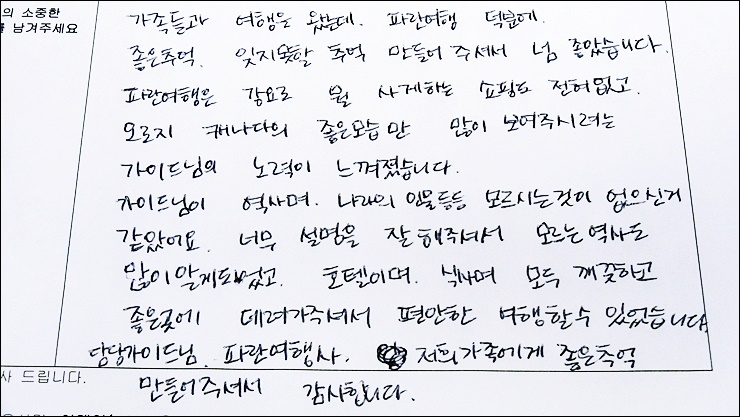 의 소중한
남겨주세요
가족들과 여행을 왔는데. 파란여행 덕분에.
좋은추억. 잊지못할 추억 만들어 주셔서 넘 좋았습니다.
파란여행은 강요로 뭘 사게하는 쇼핑도 전혀없고.
오로지 캐나다의 좋은모습만 많이 보여주시려는
가이드님의 노력이 느껴졌습니다.
가이드님이 역사며. 나라의 인물등등 모르시는것이 없으신거
같았어요. 너무 설명을 잘해주셔서 모르는역사도
많이알게되었고. 호텔이며. 식사며 모두 깨끗하고
좋은곳에 데려가주셔서 편안한 여행할수 있었습니다
담당가이드님. 파란여행사. 저희가족에게 좋은추억
사 드립니다.
만들어주셔서 감사합니다.